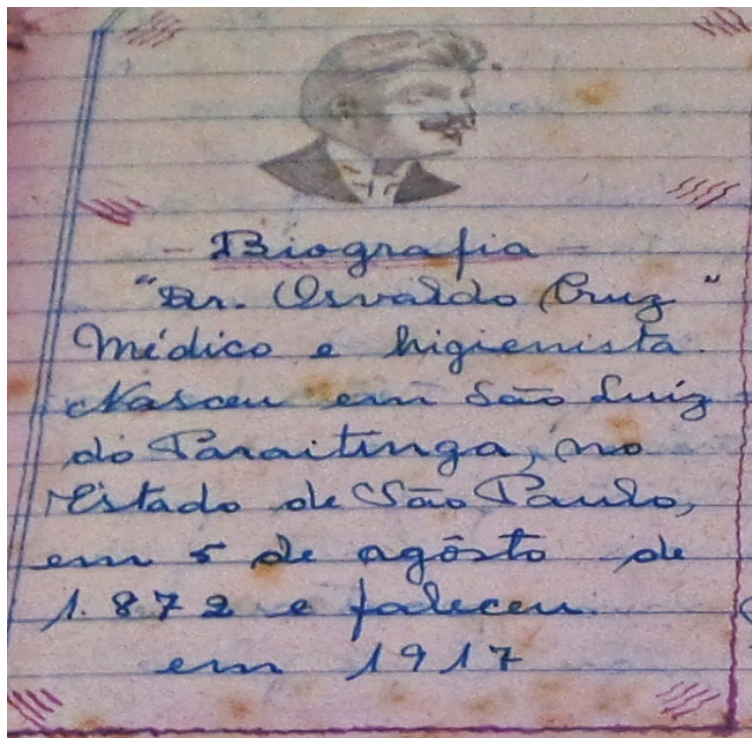 - Biografia -
"Dr. Osvaldo Cruz"
Médico e higienista.
Nasceu em São Luíz
do Paraitinga, no
Estado de São Paulo,
em 5 de agôsto de
1.872 e faleceu
em 1917